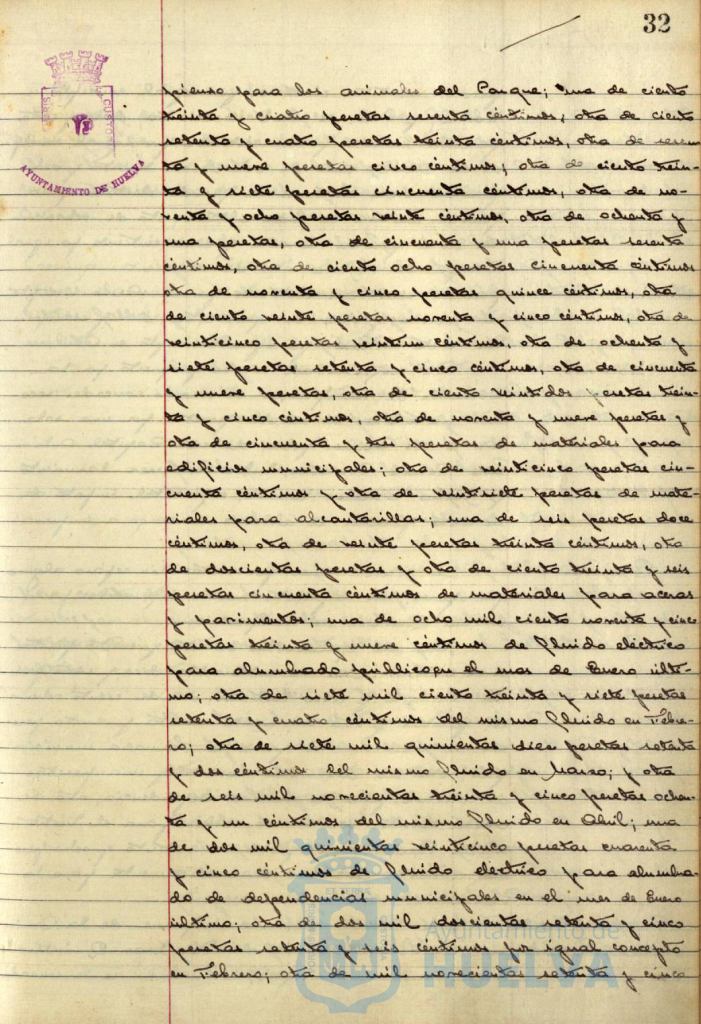 32
AYUNTAMIENTO DE HUELVA
pienso para los animales del Parque; una de ciento
treinta y cuatro pesetas sesenta céntimos, otra de ciento
setenta y cuatro pesetas treinta céntimos, otra de sesen-
ta y nueve pesetas cinco céntimos; otra de ciento trein-
ta y siete pesetas cincuenta céntimos, otra de no-
venta y ocho pesetas veinte céntimos, otra de ochenta y
una pesetas, otra de cincuenta y una pesetas sesenta
céntimos, otra de ciento ocho pesetas cincuenta céntimos
otra de noventa y cinco pesetas quince céntimos, otra
de ciento veinte pesetas noventa y cinco céntimos, otra de
veinticinco pesetas veintiun céntimos, otra de ochenta y
siete pesetas setenta y cinco céntimos, otra de cincuenta
y nueve pesetas, otra de ciento veintidos pesetas trein-
ta y cinco céntimos, otra de noventa y nueve pesetas y
otra de cincuenta y tres pesetas de materiales para
edificios municipales; otra de veinticinco pesetas cin-
cuenta céntimos y otra de veintisiete pesetas de mate-
riales para alcantarillas; una de seis pesetas doce
céntimos, otra de veinte pesetas treinta céntimos, otra
de doscientas pesetas y otra de ciento treinta y seis
pesetas cincuenta céntimos de materiales para aceras
y pavimentos; una de ocho mil ciento noventa y cinco
pesetas treinta y nueve céntimos de fluido eléctrico
para alumbrado público, en el mes de Enero últi-
mo; otra de siete mil ciento treinta y siete pesetas
setenta y cuatro céntimos del mismo fluido en Febre-
ro; otra de siete mil quinientas diez pesetas setenta
y dos céntimos del mismo fluido en Marzo; y otra
de seis mil novecientas treinta y cinco pesetas ochen-
ta y un céntimos del mismo fluido en Abril; una
de dos mil quinientas veinticinco pesetas cuarenta
y cinco céntimos de fluido eléctrico para alumbra-
do de dependencias municipales en el mes de Enero
último; otra de dos mil doscientas setenta y cinco
pesetas setenta y seis céntimos por igual concepto
en Febrero; otra de mil novecientas setenta y cinco
Ayuntamiento de
HUELVA